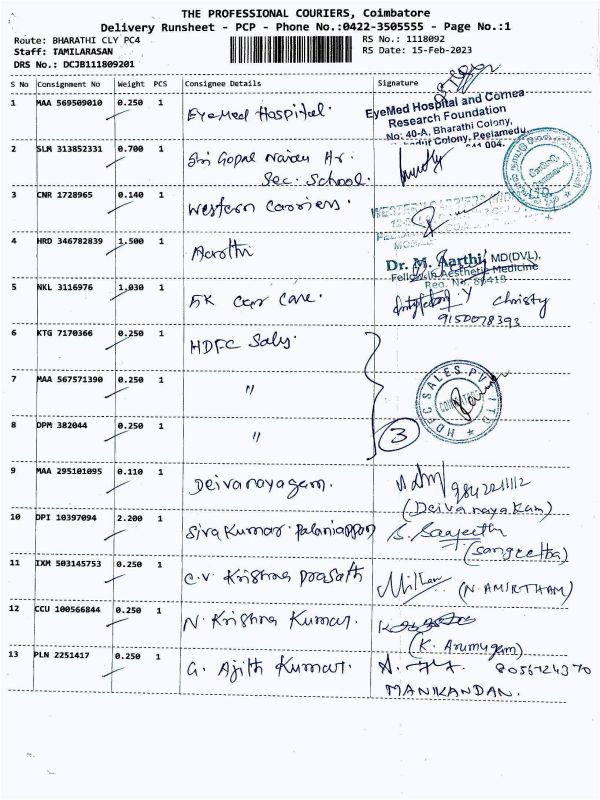 THE PROFESSIONAL COURIERS, Coimbatore
Delivery Runsheet - PCP - Phone No.:0422-3505555 - Page No.:1
Route: BHARATHI CLY PC4 RS No.: 1118092
Staff: TAMILARASAN RS Date: 15-Feb-2023
DRS No.: DCJB111809201
S No Consignment No Weight PCS Consignee Details Signature
1 MAA 569509010 0.250 1 EyeMed Hospital.
EyeMed Hospital and Cornea
Research Foundation
No: 40-A, Bharathi Colony,
Colony, Peelamedu,
004.
2 SLM 313852331 0.700 1 Sri Gopal Naidu Hr.
Sec. School.
3 CNR 1728965 0.140 1 Western Carriers.
4 HRD 346782839 1.500 1 Aarthi
Dr. M. Aarthi, MD(DVL),
Fellow in Aesthetic Medicine
Reg. No: 86419
5 NKL 3116976 1.030 1 5K Car Care. Y Christy
9150078393
6 KTG 7170366 0.250 1 HDFC Sals.
7 MAA 567571390 0.250 1 "
HDFC SALES PVT LTD
8 DPM 382044 0.250 1 " 3
9 MAA 295101095 0.110 1 Deivanayagam. 9842211112
(Deivanayakam)
10 DPI 10397094 2.200 1 Siva Kumar. Palaniappan S. Sangeetha
(Sangeetha)
11 IXM 503145753 0.250 1 C.V. Krishna Prasath (N. AMIRTHAM)
12 CCU 100566844 0.250 1 N. Krishna Kumar.
(K. Arumugam)
13 PLN 2251417 0.250 1 G. Ajith Kumar. 8056724370
MANIKANDAN.